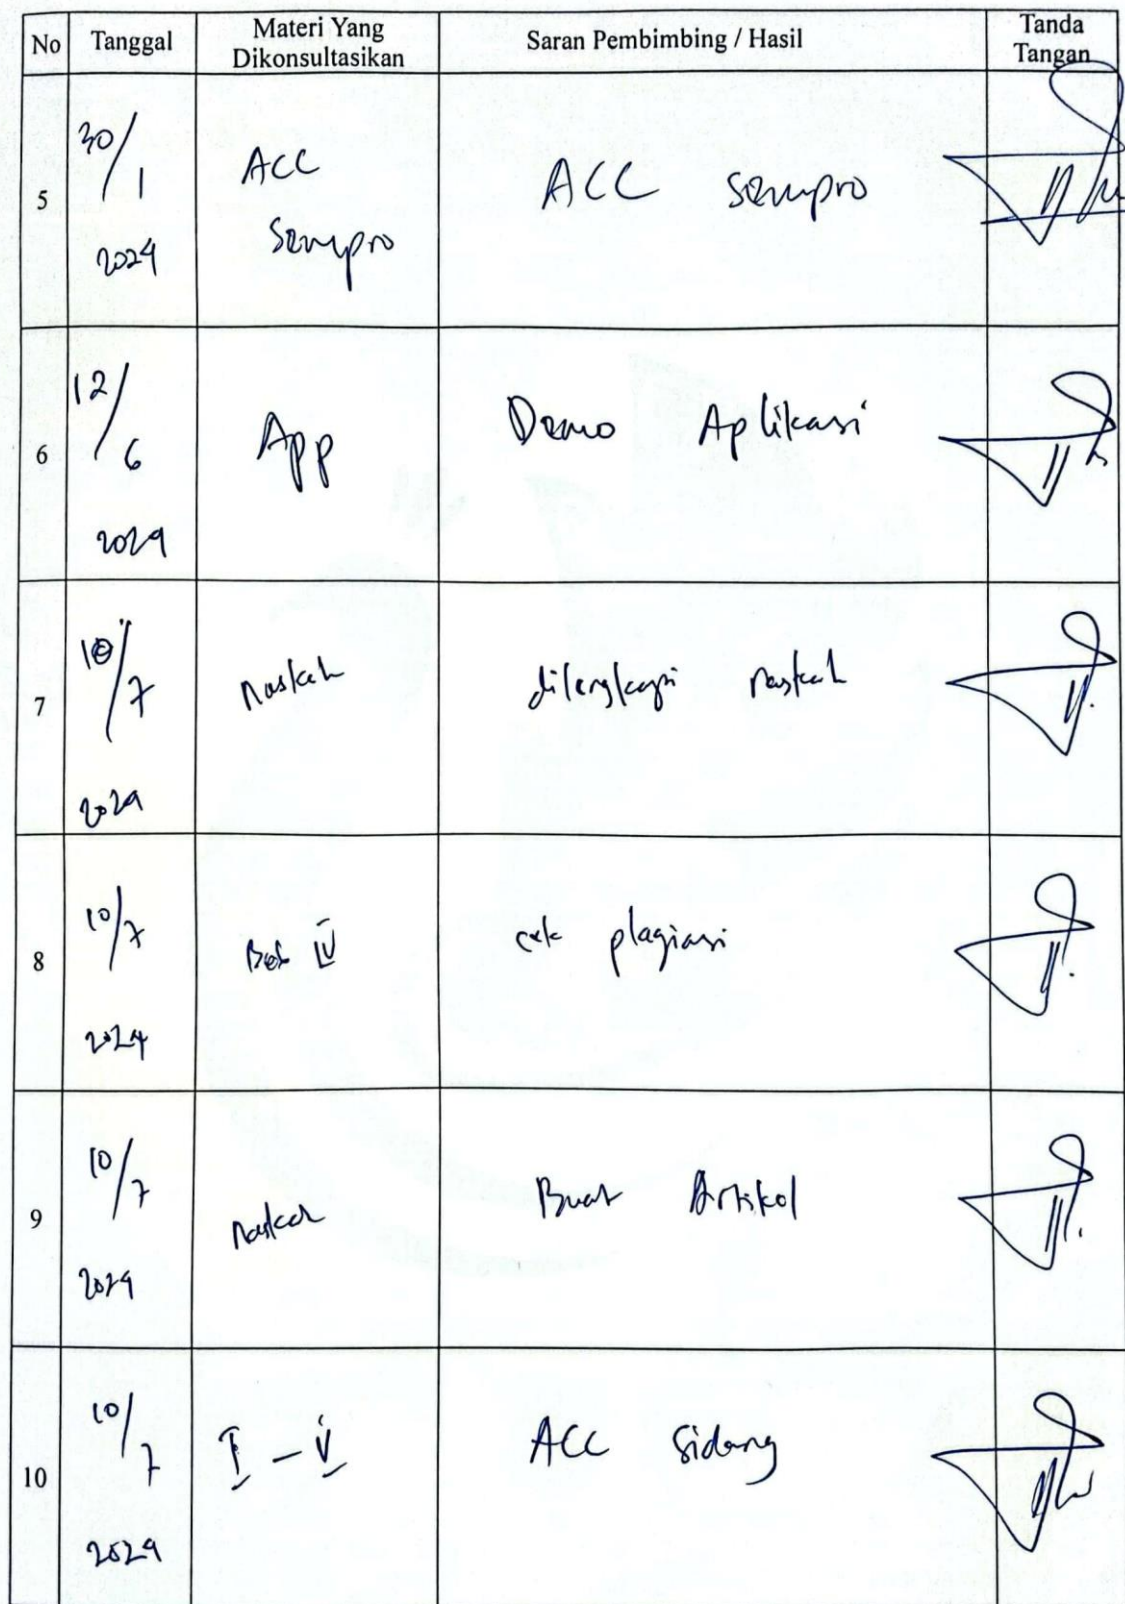 No Tanggal Materi Yang Dikonsultasikan Saran Pembimbing / Hasil Tanda Tangan
5 30/1 2024 ACC Sempro ACC Sempro
6 12/6 2024 App Demo Aplikasi
7 10/7 2024 naskah dilengkapi naskah
8 10/7 2024 Bab IV cek plagiasi
9 10/7 2024 naskah Buat Artikel
10 10/7 2024 I - V ACC Sidang